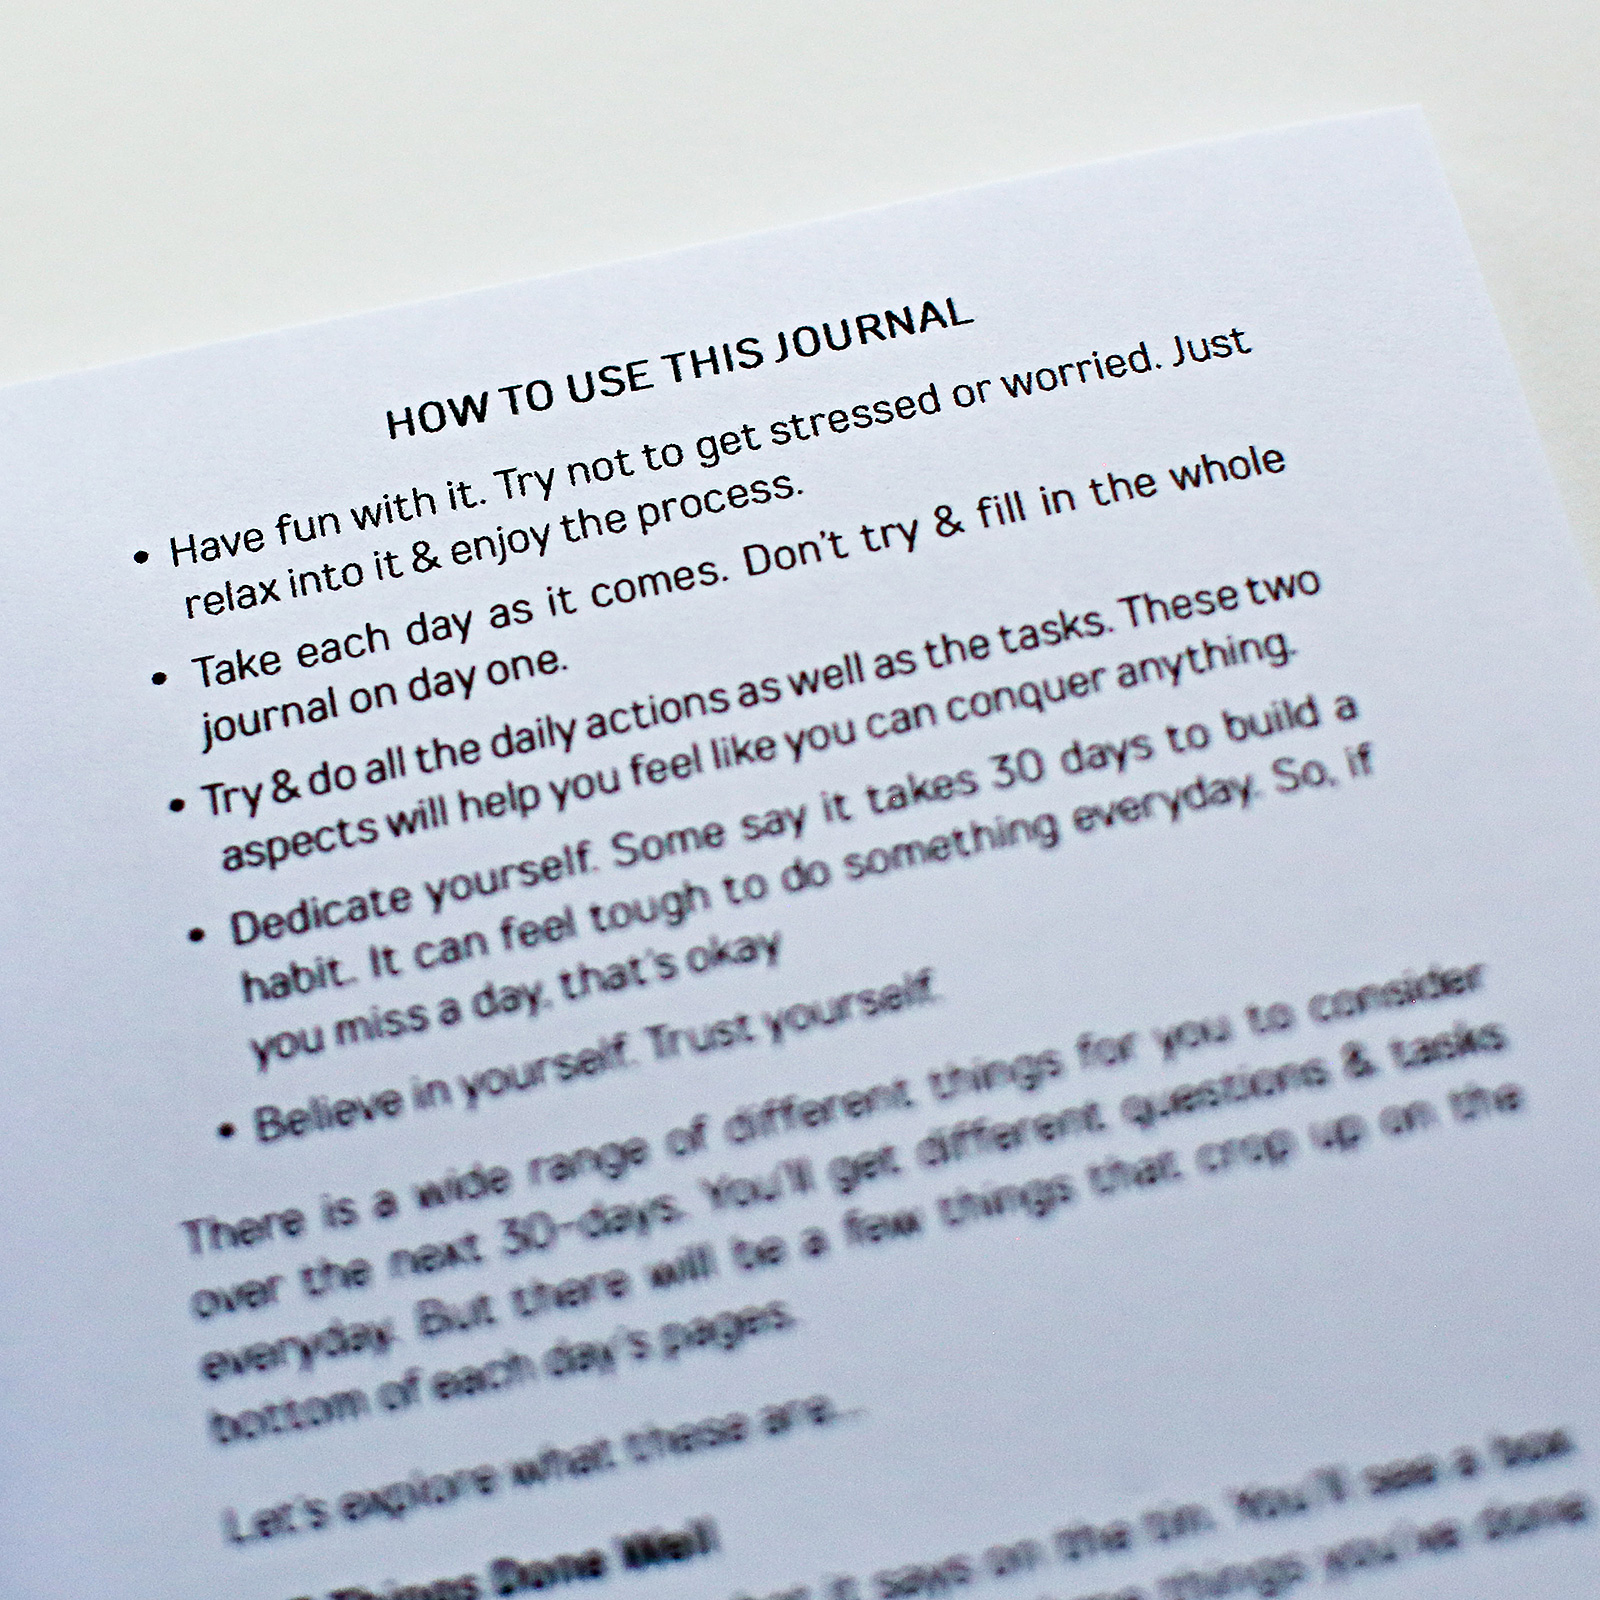 HOW TO USE THIS JOURNAL
• Have fun with it. Try not to get stressed or worried. Just
relax into it & enjoy the process.
• Take each day as it comes. Don't try & fill in the whole
journal on day one.
• Try & do all the daily actions as well as the tasks. These two
aspects will help you feel like you can conquer anything.
• Dedicate yourself. Some say it takes 30 days to build a
habit. It can feel tough to do something everyday. So, if
you miss a day, that's okay
• Believe in yourself. Trust yourself.
There is a wide range of different things for you to consider
over the next 30-days. You'll get different questions & tasks
everyday. But there will be a few things that crop up on the
bottom of each day's pages.
Let's explore what these are...
Things Done Well
it says on the tin. You'll see a box
things you've done